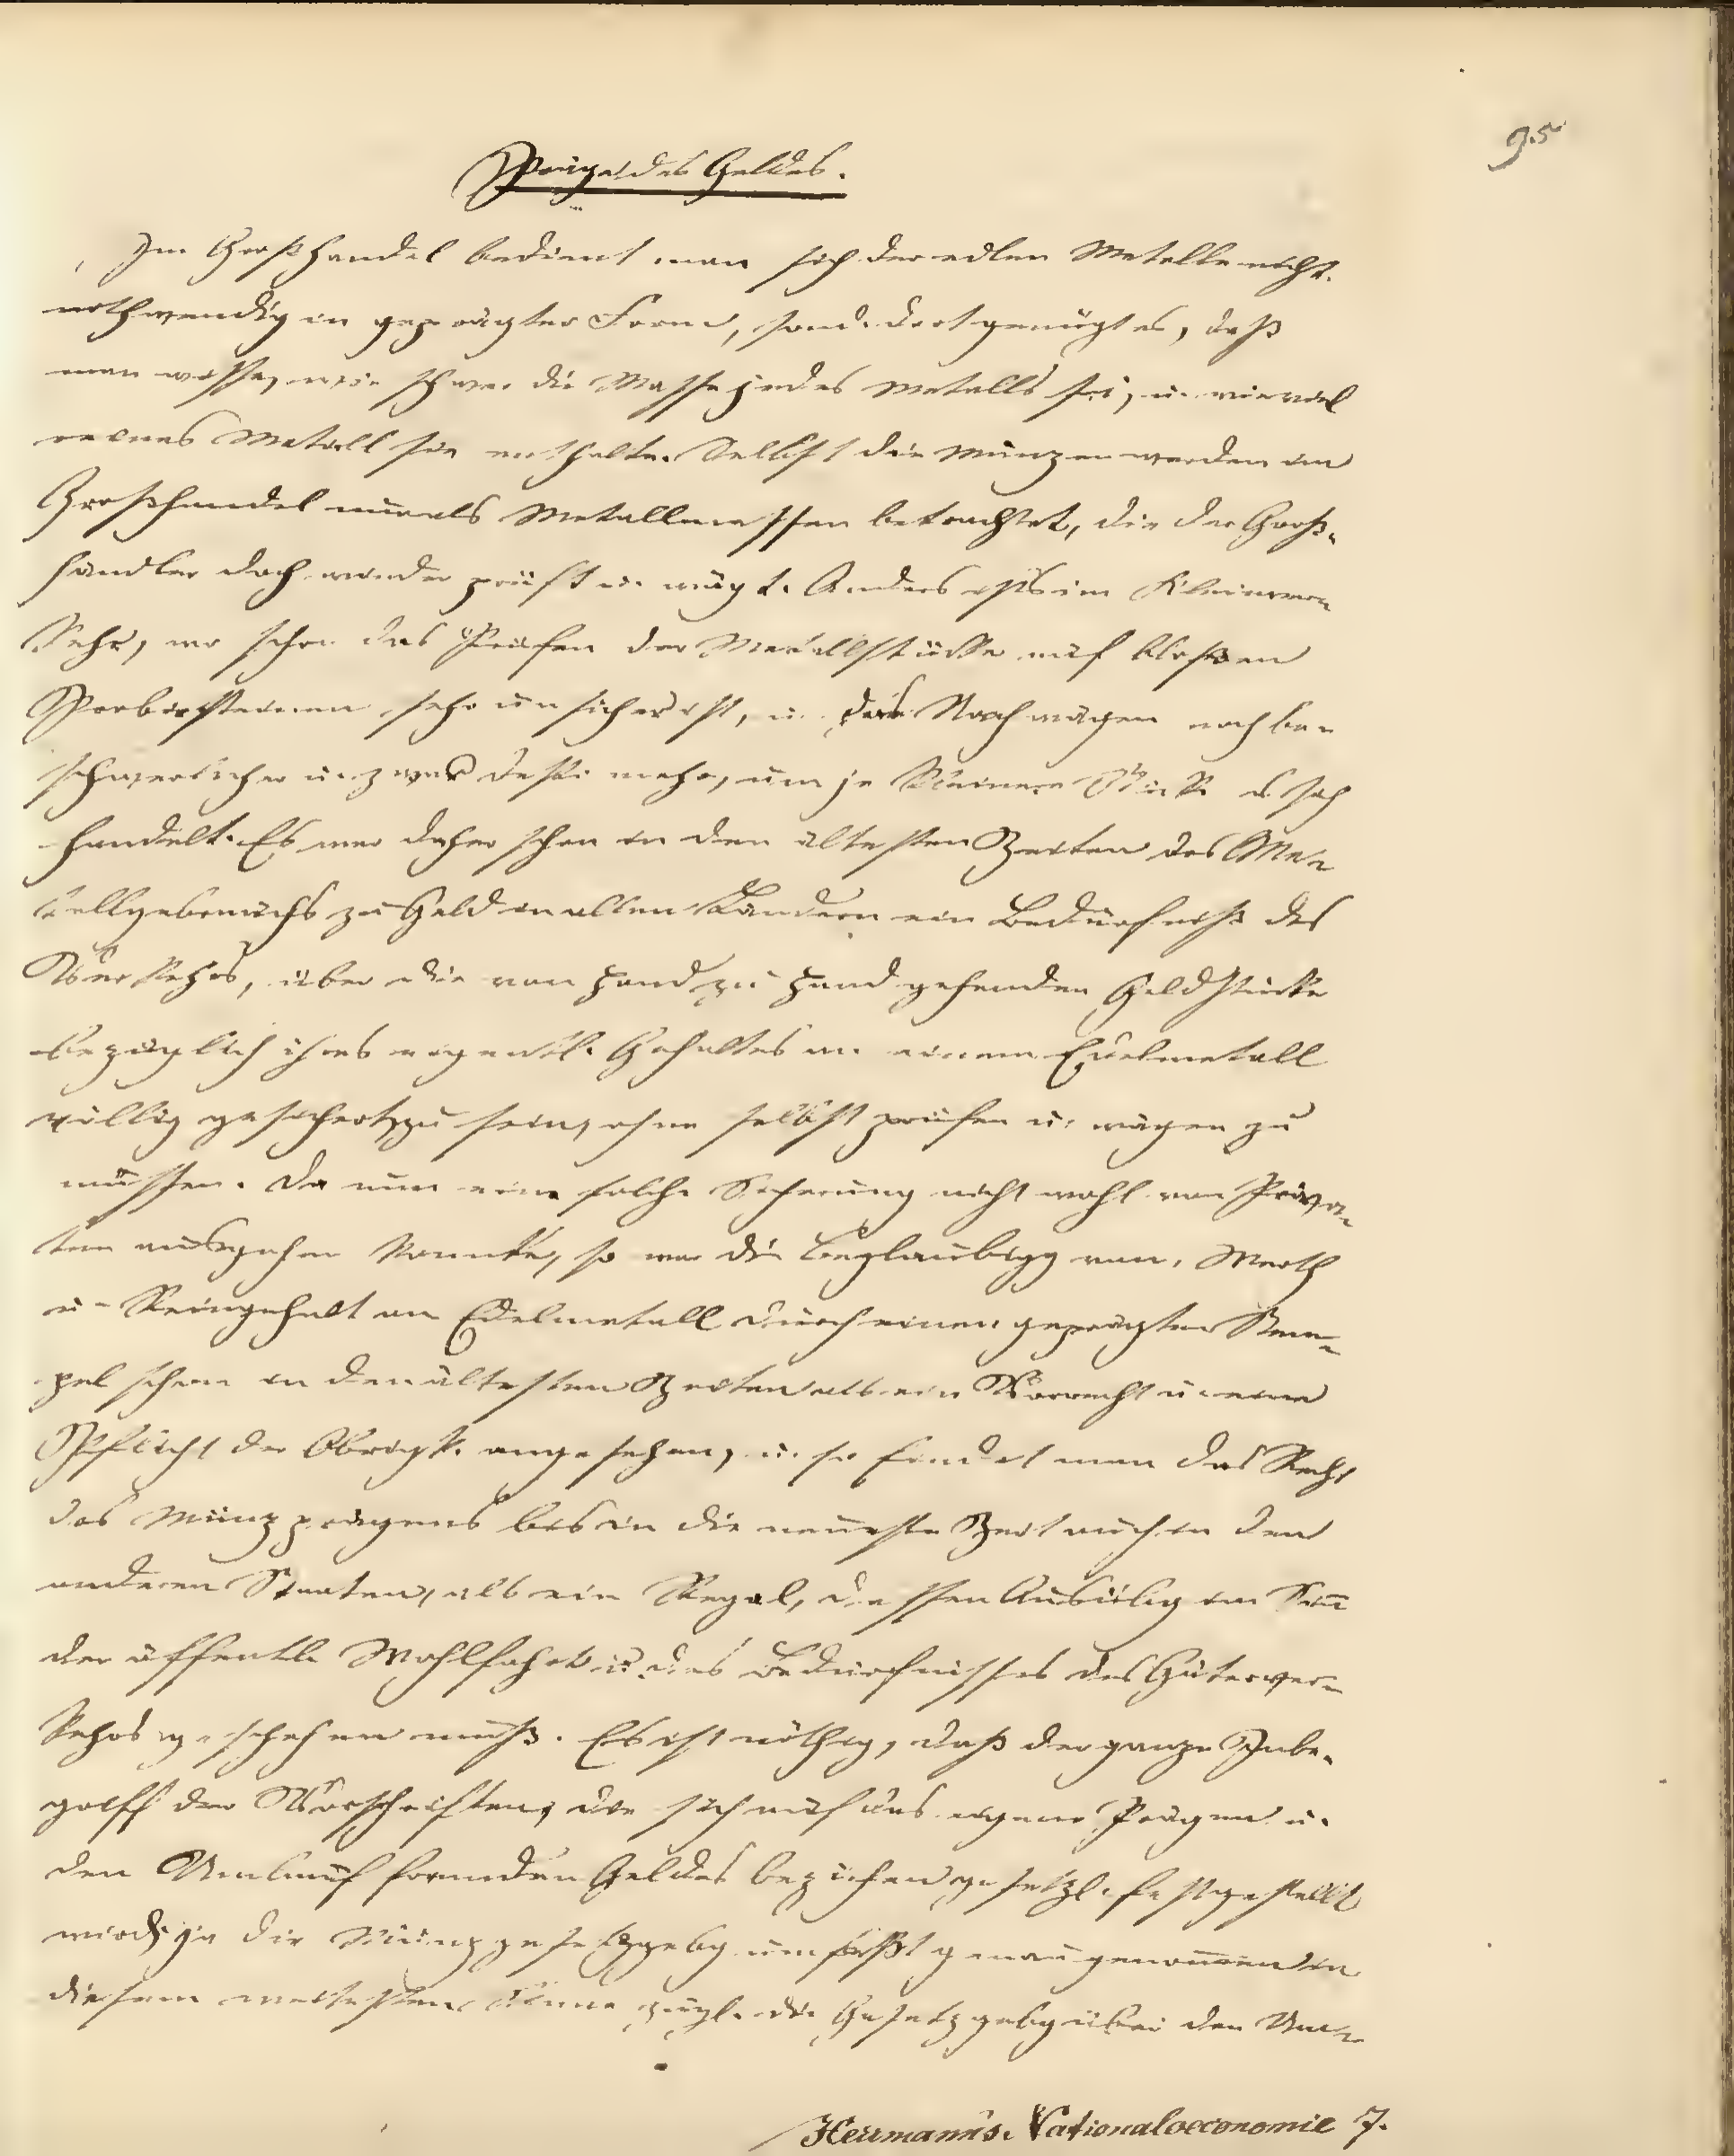 95
Präge des Geldes.
Im Großhandel bedient man sich der edlen Metalle nicht
nothwendig in geprägter Form, sond. dort genügt es, daß
man wisse, wie schwer die Masse jedes Metalls sei, u. wieviel
reines Metall sie enthalte. Selbst die Münzen werden im
Großhandel nur als Metallmassen betrachtet, die der Groß-
händler doch wieder prüft u. wägt. Anders ists im Kleinver-
kehr, wo schon das Prüfen der Metallstücke auf bloßen
Probiersteinen sehr unsicher ist, u. das Nachwägen noch be-
schwerlicher u. zwar desto mehr, um je kleinere Stücke es sich
handelt. Es war daher schon in den ältesten Zeiten des Me-
tallgebrauchs zu Geld in allen Ländern ein Bedürfniß des
Verkehrs, über die von Hand zu Hand gehenden Geldstücke
bezüglich ihres eigentl. Gehaltes an einem Edelmetall
völlig gesichert zu sein, ohne selbst prüfen u. wägen zu
müssen. Da nun eine solche Sicherung nicht wohl von Priva-
ten ausgehen konnte, so war die Beglaubigg von Werth
u. Reingehalt an Edelmetall durch einen geprägten Stem-
pel schon in den ältesten Zeiten als ein Vorrecht u. eine
Pflicht der Obrigk. angesehen, u. so findet man das Recht
des Münzprägens bis in die neueste Zeit auch in den
anderen Staaten, als ein Regal, dessen Ausübg im Sinn
der öffentl. Wohlfahrt u. des Bedürfnisses des Güterver-
kehrs geschehen muß. Es ist nöthig, daß der ganze Inbe-
griff der Vorschriften, die sich auf das eigene Prägen u.
den Umlauf fremden Geldes beziehen gesetzl. festgestellt
wird; ja die Münzgesetzgebg umfaßt genau genommen in
diesem weitesten Sinne zugl. die Gesetzgebg über den Um-
Herrmann's. Nationaloeconomie 7.